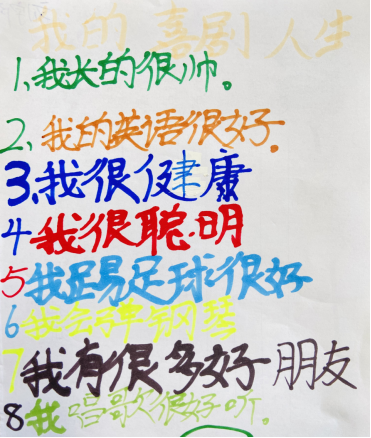 我的喜剧人生
1、我长的很帅。
2、我的英语很好.
3、我很健康
4 我很聪明
5 我踢足球很好
6 我会弹钢琴
7 我有很多好朋友
8 我唱歌很好听.